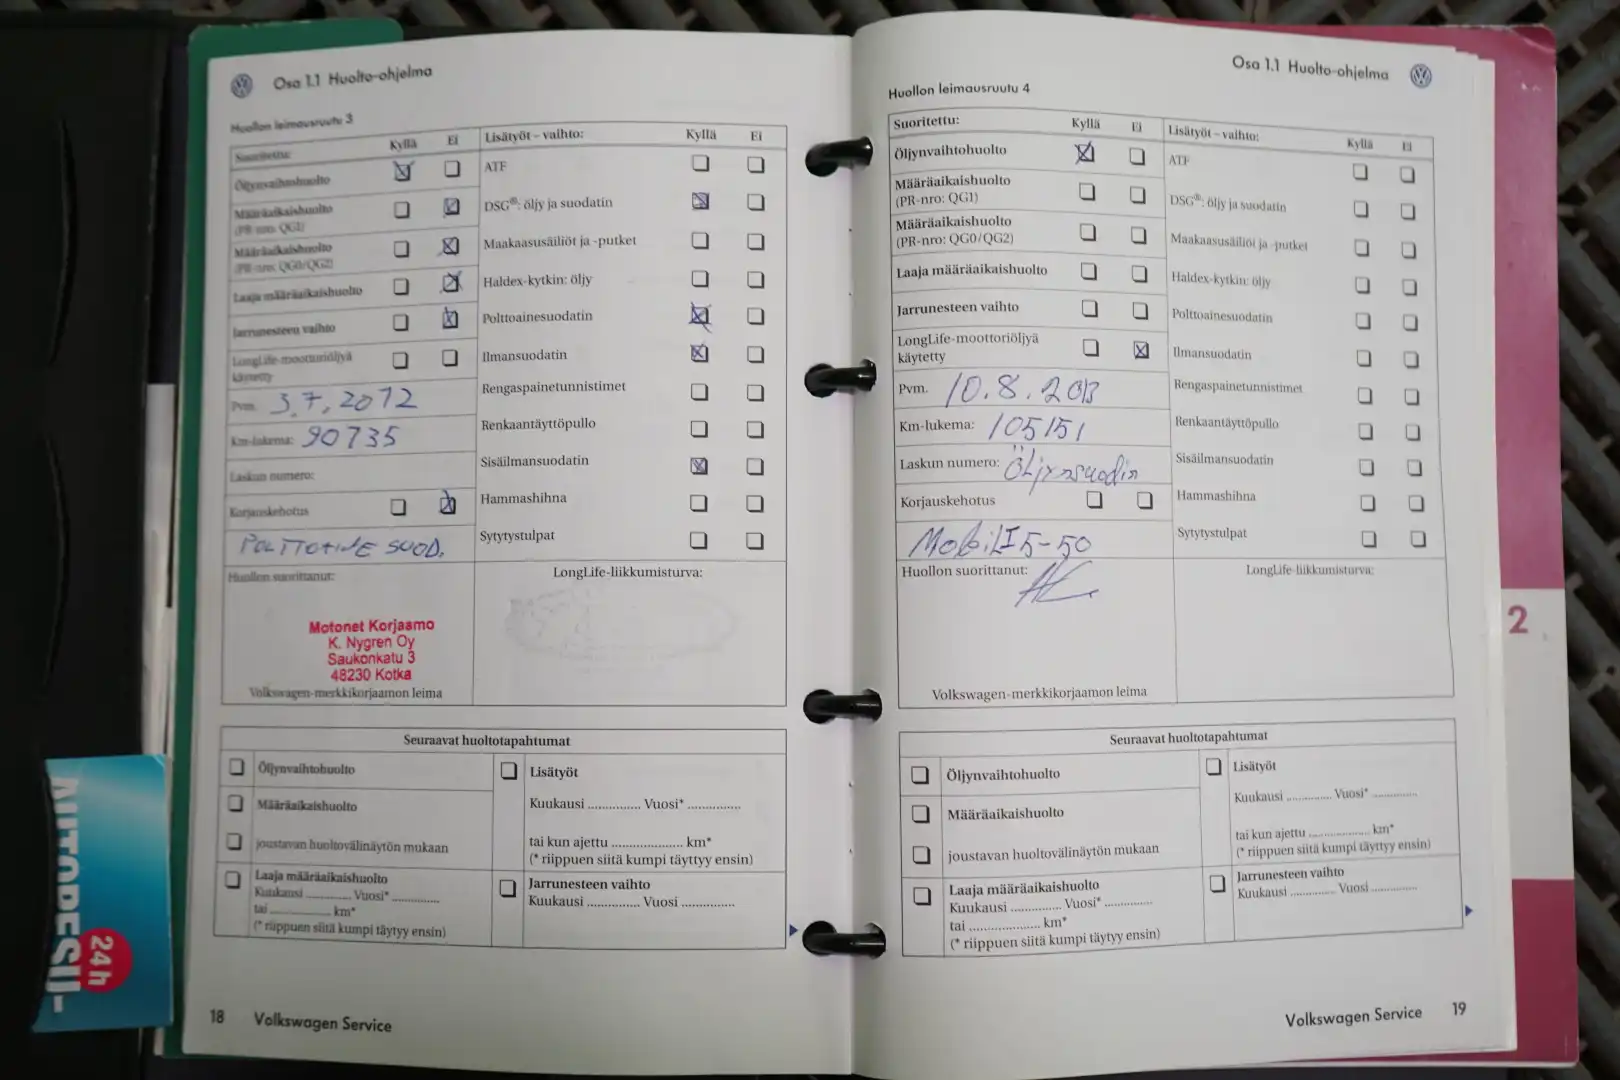 Osa 1.1 Huolto-ohjelma
Huollon leimausruutu 3
Suoritettu:
Kyllä
Ei
Öljynvaihtohuolto
Määräaikaishuolto
(PR-nro: QG1)
Määräaikaishuolto
(PR-nro: QG0/QG2)
Laaja määräaikaishuolto
Jarrunesteen vaihto
LongLife-moottoriöljyä
käytetty
Pvm. 3.7.2012
Km-lukema: 90735
Laskun numero:
Korjauskehotus
POLTTOAINE SUOD.
Huollon suorittanut:
Motonet Korjaamo
K. Nygren Oy
Saukonkatu 3
48230 Kotka
Volkswagen-merkkikorjaamon leima
Lisätyöt – vaihto:
Kyllä
Ei
ATF
DSG®: öljy ja suodatin
Maakaasusäiliöt ja -putket
Haldex-kytkin: öljy
Polttoainesuodatin
Ilmansuodatin
Rengaspainetunnistimet
Renkaantäyttöpullo
Sisäilmansuodatin
Hammashihna
Sytytystulpat
LongLife-liikkumisturva:
Seuraavat huoltotapahtumat
Öljynvaihtohuolto
Määräaikaishuolto
joustavan huoltovälinäytön mukaan
Laaja määräaikaishuolto
Kuukausi .............. Vuosi* ..............
tai .................. km*
(* riippuen siitä kumpi täytyy ensin)
Lisätyöt
Kuukausi ............... Vuosi* ...............
tai kun ajettu .................... km*
(* riippuen siitä kumpi täyttyy ensin)
Jarrunesteen vaihto
Kuukausi ............... Vuosi ...............
18 Volkswagen Service
AUTOPESU-
24h
Osa 1.1 Huolto-ohjelma
Huollon leimausruutu 4
Suoritettu:
Kyllä
Ei
Öljynvaihtohuolto
Määräaikaishuolto
(PR-nro: QG1)
Määräaikaishuolto
(PR-nro: QG0/QG2)
Laaja määräaikaishuolto
Jarrunesteen vaihto
LongLife-moottoriöljyä
käytetty
Pvm. 10.8.2013
Km-lukema: 105151
Laskun numero: Öljynsuodin
Korjauskehotus
Mobil1 5-50
Huollon suorittanut:
Volkswagen-merkkikorjaamon leima
Lisätyöt – vaihto:
Kyllä
Ei
ATF
DSG®: öljy ja suodatin
Maakaasusäiliöt ja -putket
Haldex-kytkin: öljy
Polttoainesuodatin
Ilmansuodatin
Rengaspainetunnistimet
Renkaantäyttöpullo
Sisäilmansuodatin
Hammashihna
Sytytystulpat
LongLife-liikkumisturva:
2
Seuraavat huoltotapahtumat
Öljynvaihtohuolto
Määräaikaishuolto
joustavan huoltovälinäytön mukaan
Laaja määräaikaishuolto
Kuukausi ............... Vuosi* ...............
tai .................... km*
(* riippuen siitä kumpi täytyy ensin)
Lisätyöt
Kuukausi .............. Vuosi* ..............
tai kun ajettu .................... km*
(* riippuen siitä kumpi täyttyy ensin)
Jarrunesteen vaihto
Kuukausi .............. Vuosi ..............
Volkswagen Service 19